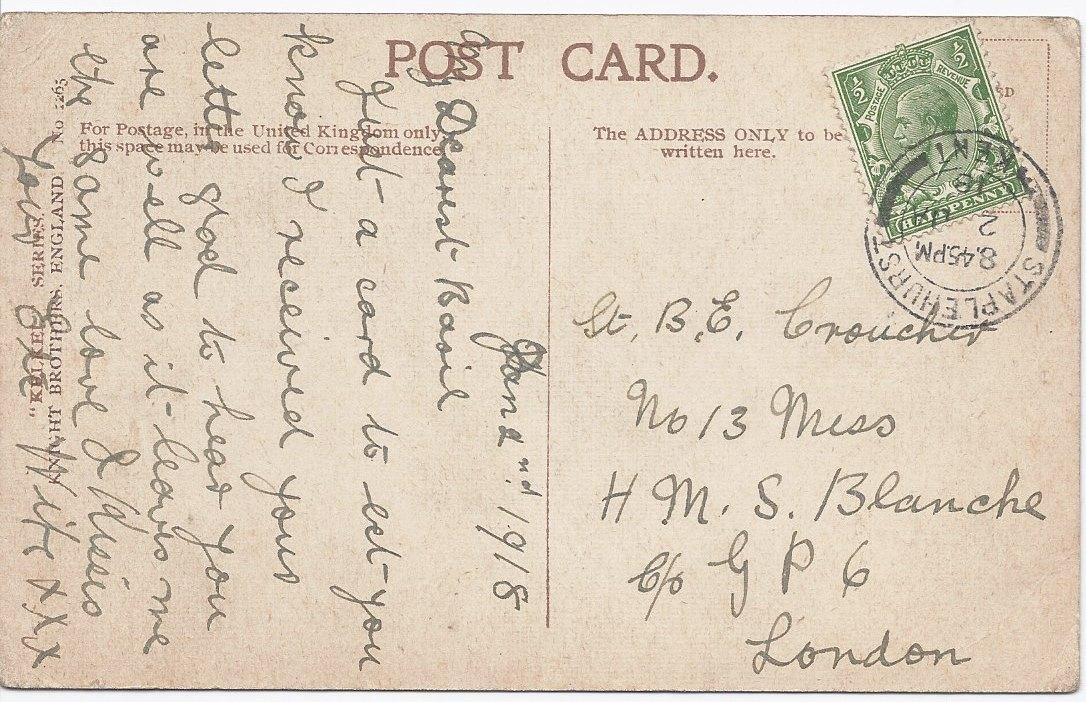 POST CARD.
For Postage, in the United Kingdom only
this space may be used for Correspondence
The ADDRESS ONLY to be
written here.
½ ½
POSTAGE REVENUE
HALFPENNY
STAPLEHURST
8.45PM
2
18
KENT
Jan 2nd 1918
My Dearest Basil
Just a card to let you
know I received your
letter glad to hear you
are well as it leaves me
the same love & Kisses
Your Wife xxx
"KELKEL" SERIES.
KNIGHT BROTHERS, ENGLAND No 1265
St. B.E. Croucher
No 13 Mess
H M. S. Blanche
C/o G P 6
London